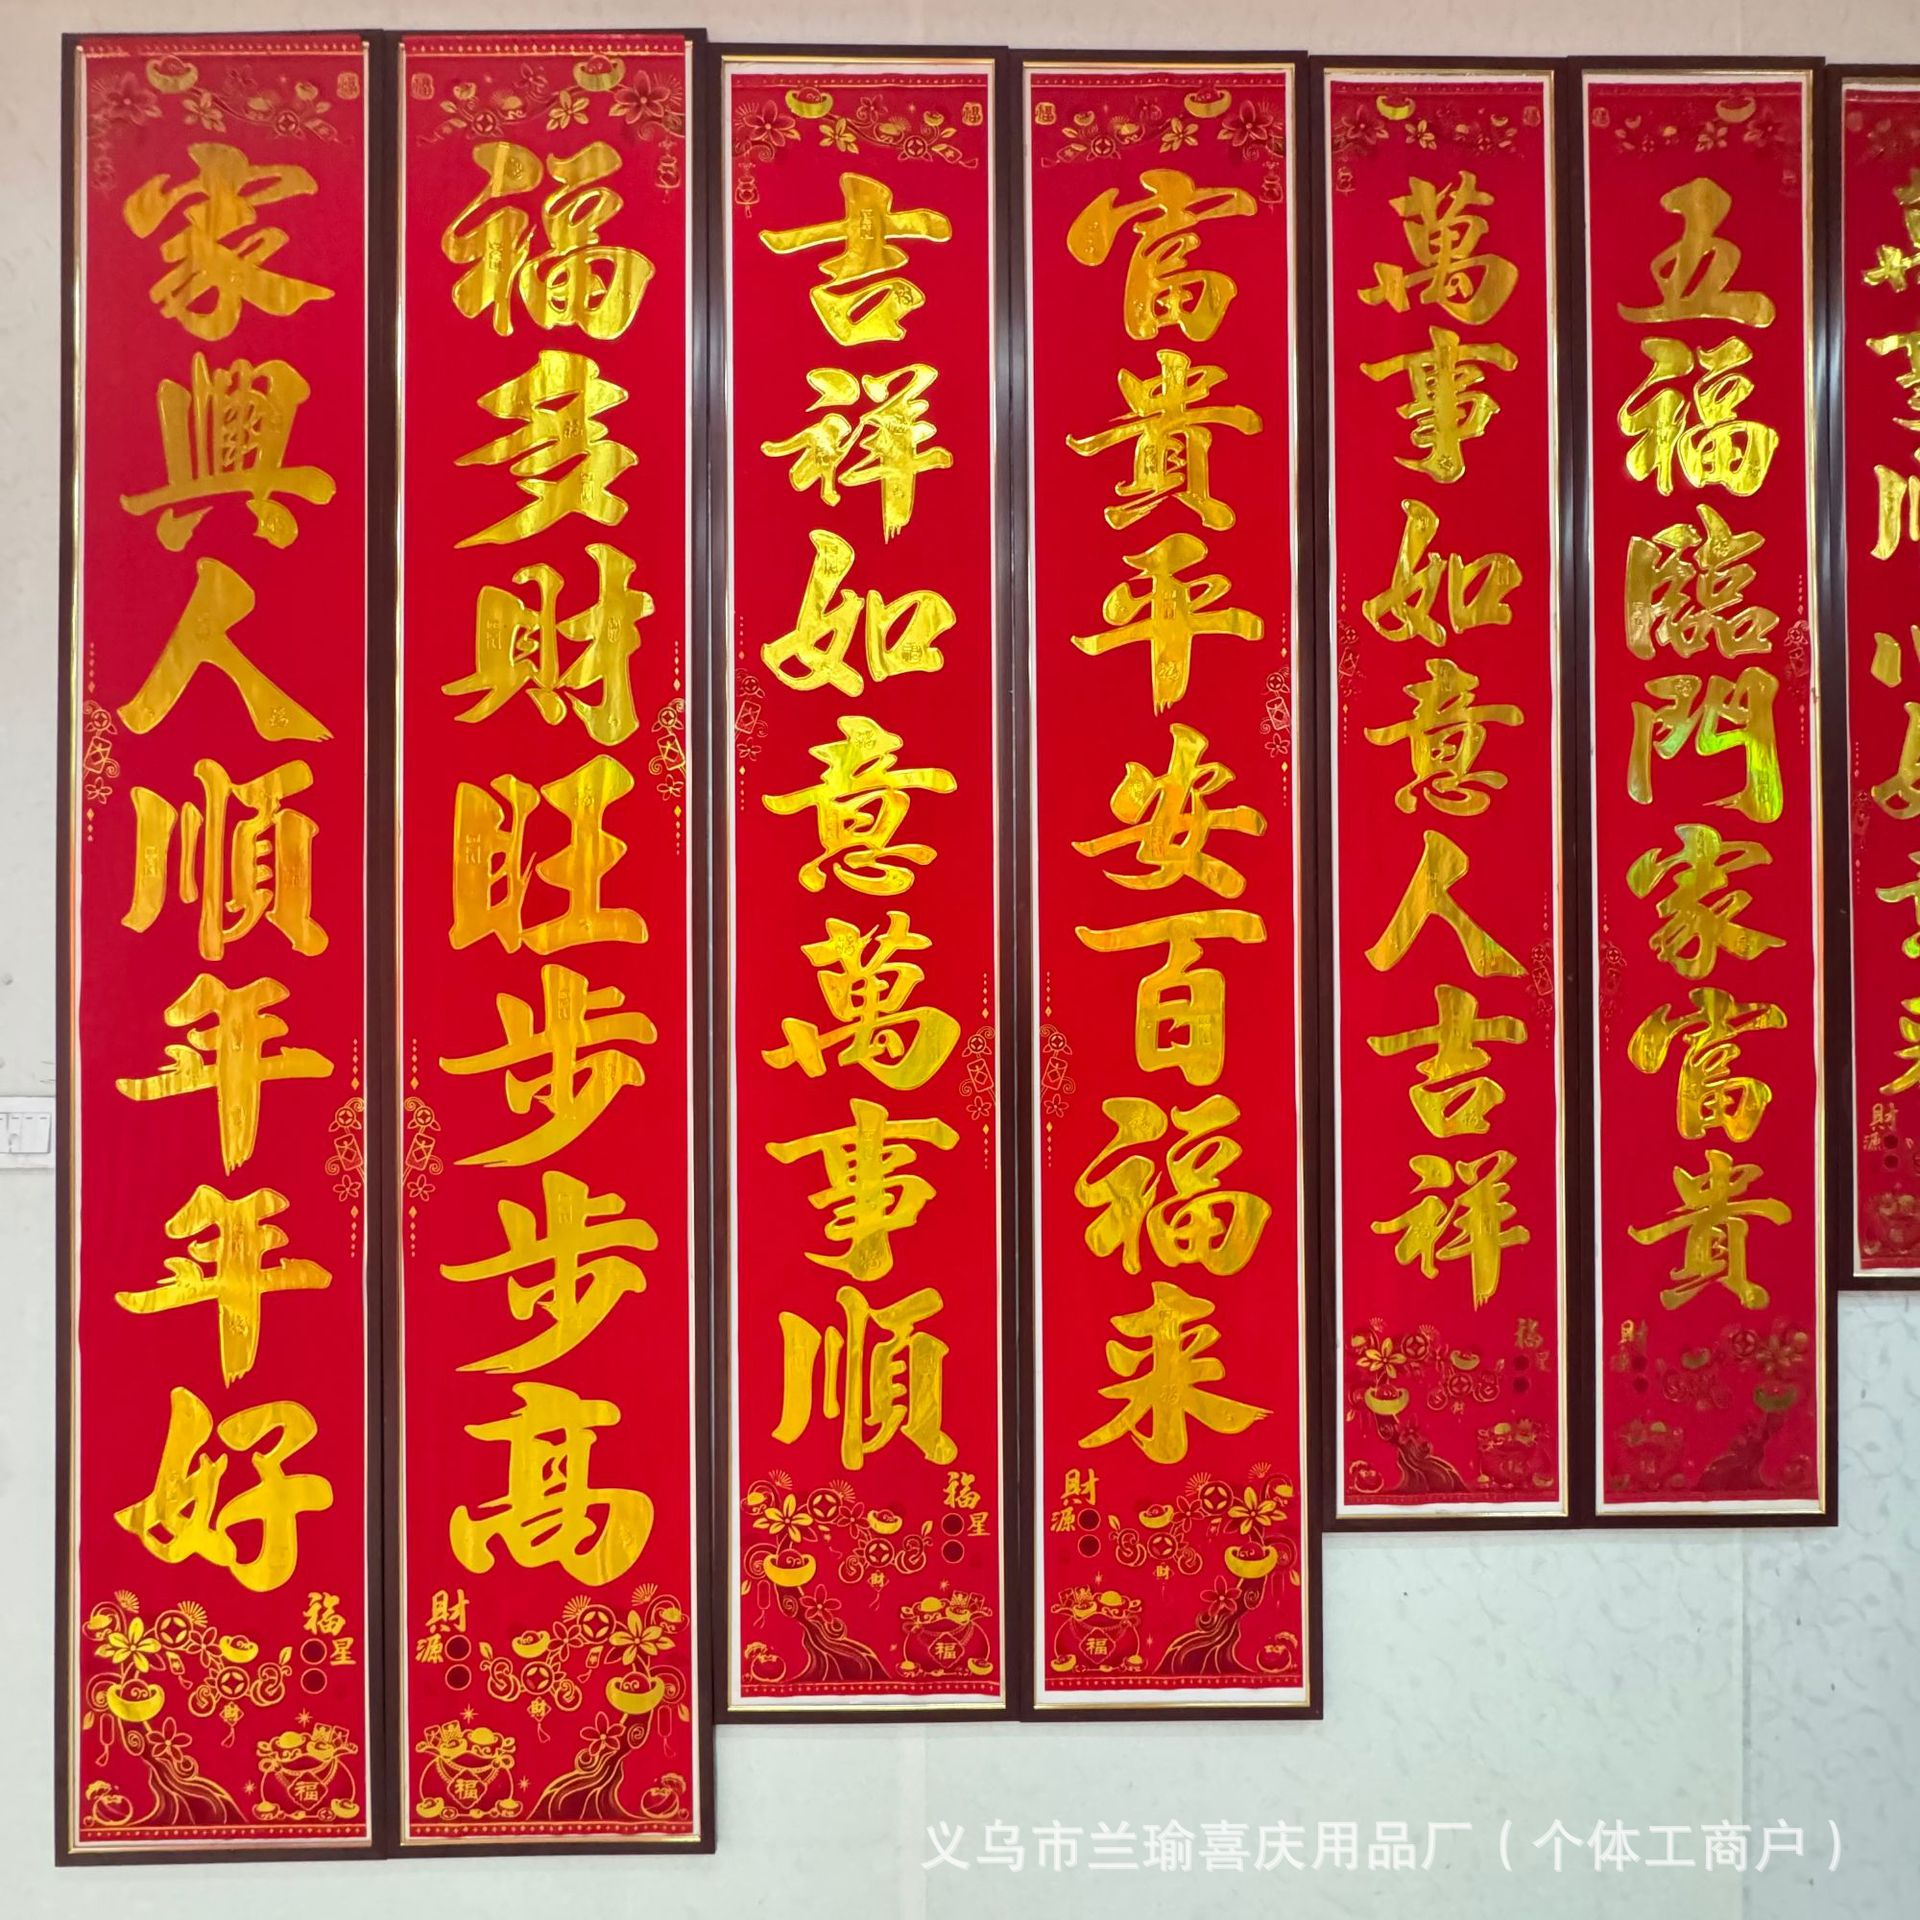 家興人順年年好
福星
福
福多財旺步步高
財源
財
福
吉祥如意萬事順
福星
財
福
富貴平安百福来
財源
財
福
萬事如意人吉祥
福星
五福臨門家富貴
財源
財源
义乌市兰瑜喜庆用品厂（个体工商户）